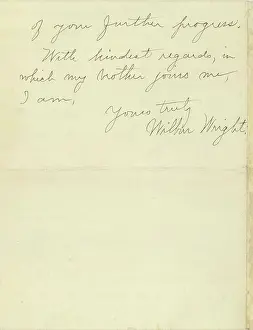 of your further progress.
With kindest regards, in
which my brother joins me,
I am,
Yours truly
Wilbur Wright.